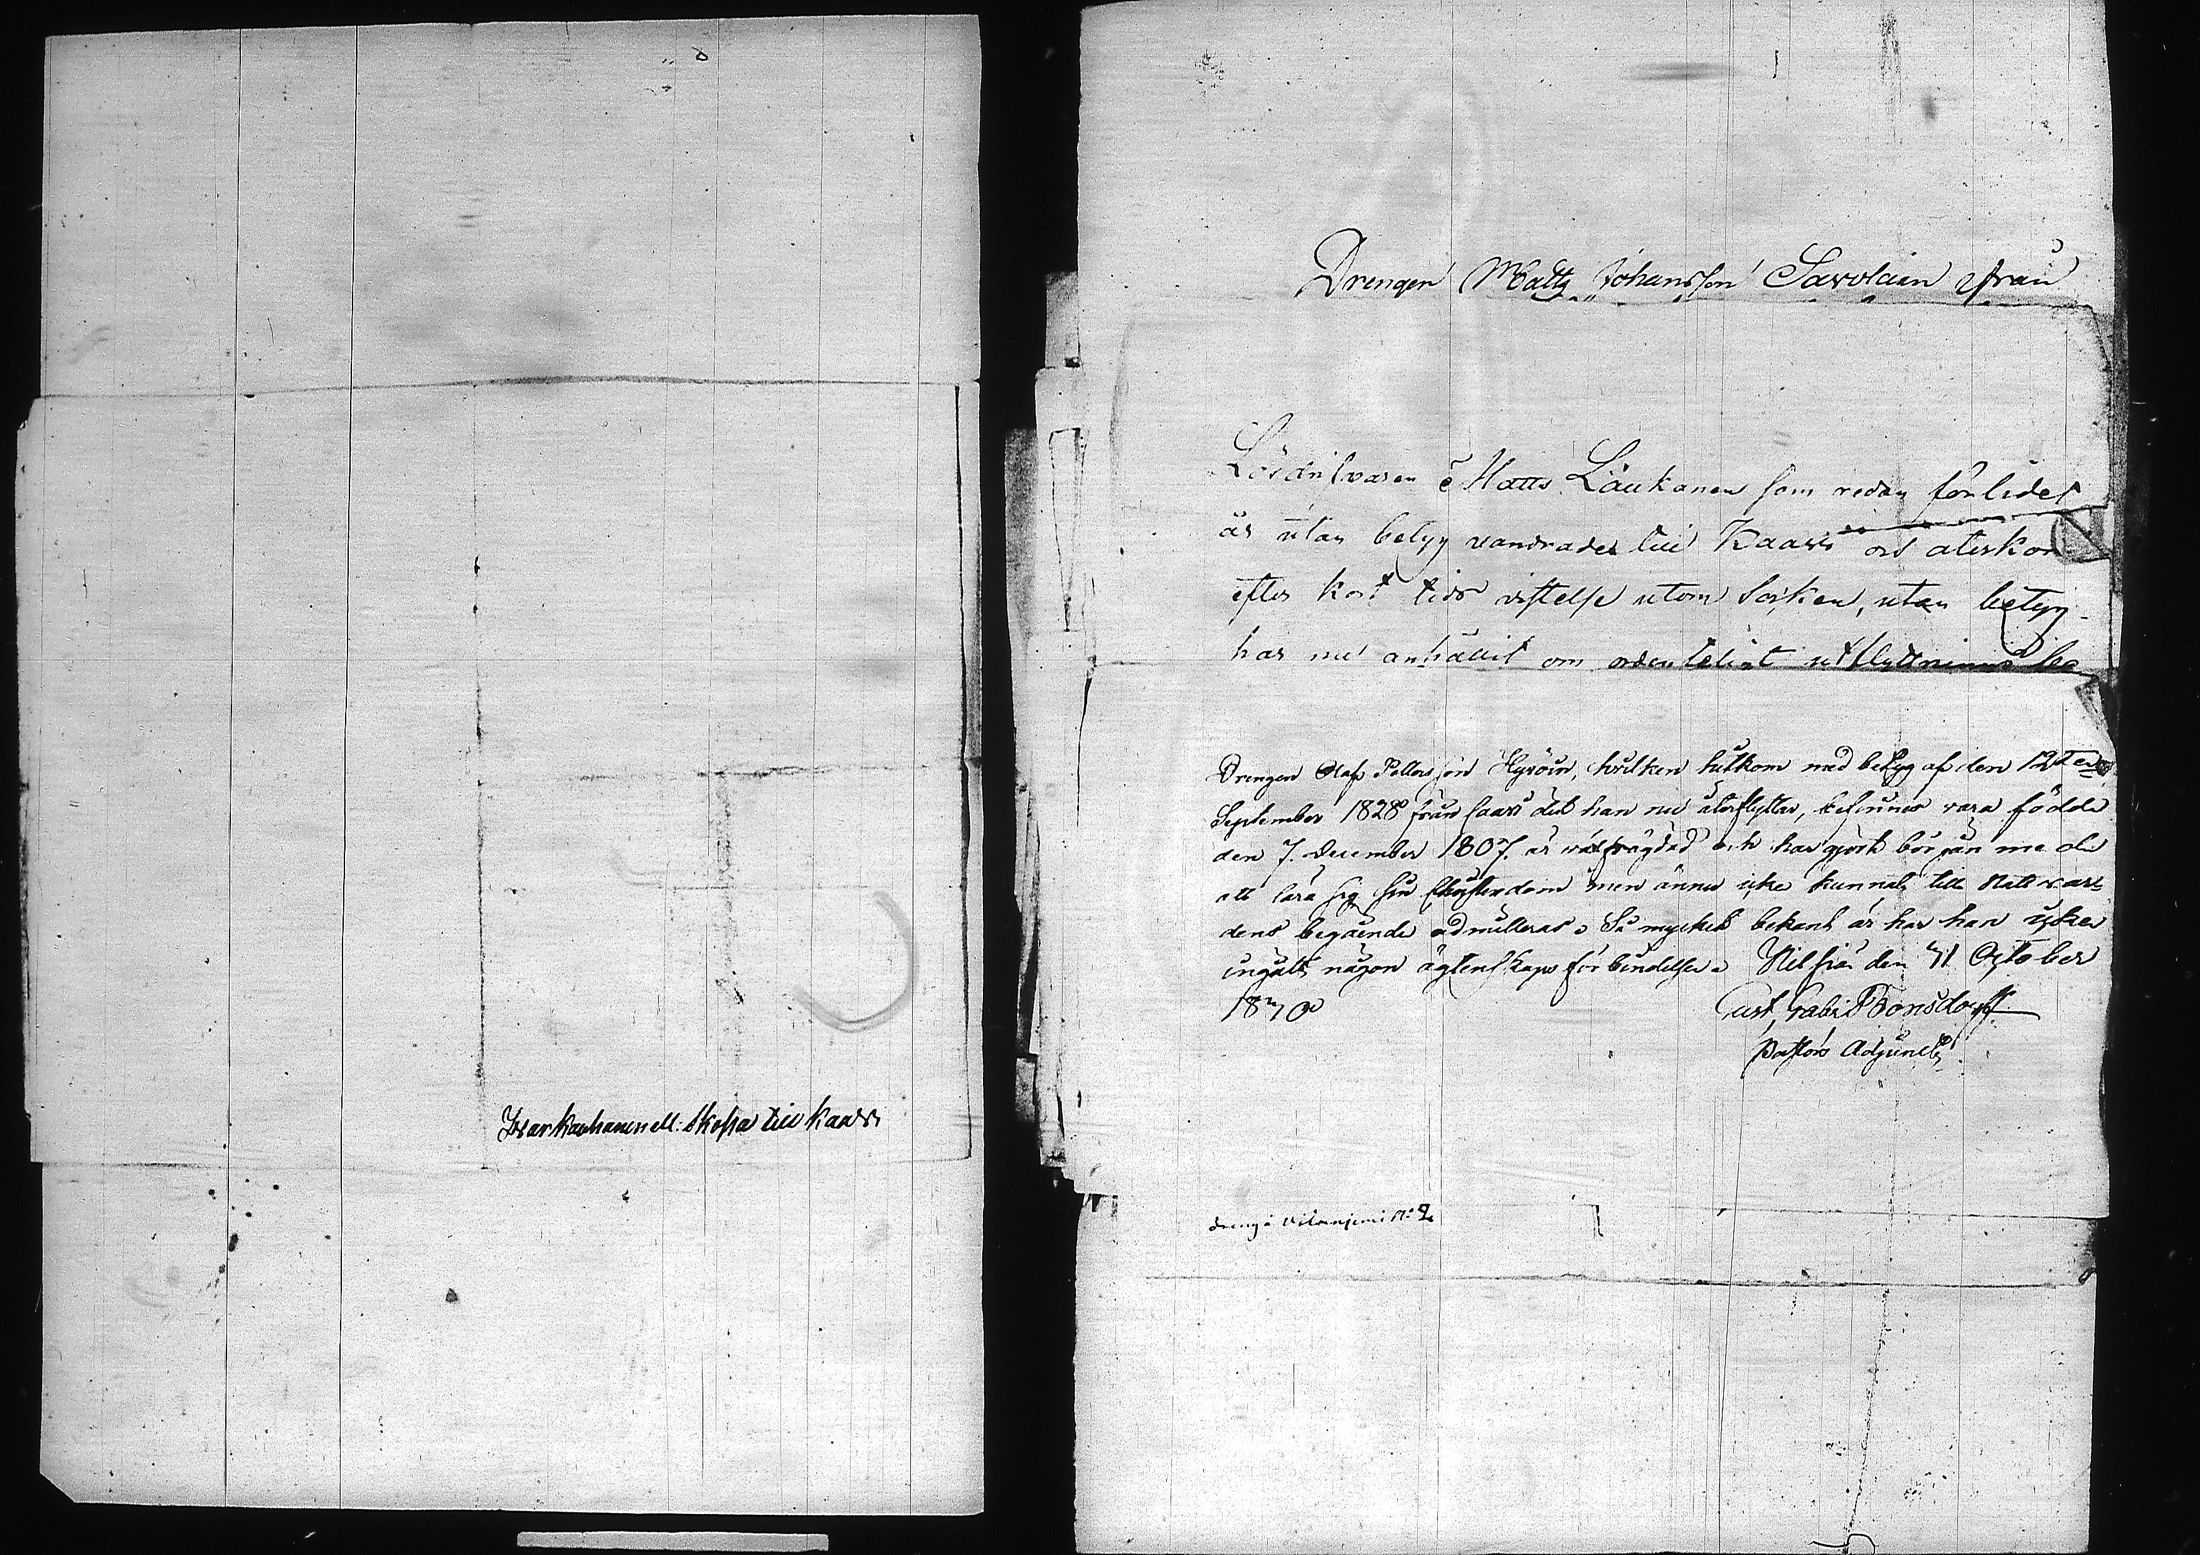 Ivar Kauhanen ell: Skopa till Kaavi
Drengen Matts Johansson Savolain ifrån
Lösdrifvaren Matts Läukanen som redan förlidet
år utan betyg vandrades till Kaavi och återkom
efter kort tids vistelse utom Socken, utan betyg
har nu anhållit om ordenteligt utflyttnings be
Drengen Olof Pettersson Hyvöin, hvilken hitkom med betyg af den 12ten
September 1828 från Kaavi dit han nu återflyttar, befinnes vara födde
den 7. December 1807. är välfrägdad och har gjort början med
att lära sig sin Christendom men ännu icke kunnat till Nattvar-
dens begående admitteras. Så mycket bekant är har han icke
ingått någon ägtenskaps förbindelse. Nilsiä den 31 October
1830
Gust. Gabr. Bonsdorff
Pastors Adjunct
dreng i No 2